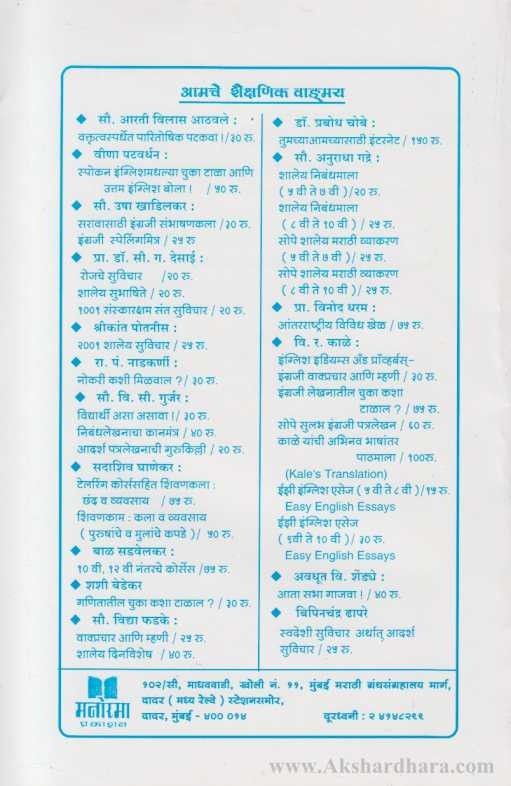 आमचे शैक्षणिक वाङ्मय
◆ सौ. आरती विलास आठवले :
वक्तृत्वस्पर्धेत पारितोषिक पटकवा !/३० रु.
◆ वीणा पटवर्धन :
स्पोकन इंग्लिशमधल्या चुका टाळा आणि
उत्तम इंग्लिश बोला ! / ५० रु.
◆ सौ. उषा खाडिलकर :
सरावासाठी इंग्रजी संभाषणकला / ३० रु.
इंग्रजी स्पेलिंगमित्र / २५ रु
◆ प्रा. डॉ. सी. ग. देसाई :
रोजचे सुविचार / २० रु.
शालेय सुभाषिते / २० रु.
१००१ संस्कारक्षम संत सुविचार / २० रु.
◆ श्रीकांत पोतनीस :
२००१ शालेय सुविचार / २५ रु.
◆ रा. पं. नाडकर्णी :
नोकरी कशी मिळवाल ? / ३० रु.
◆ सौ. वि. सी. गुर्जर :
विद्यार्थी असा असावा !/ ३० रु.
निबंधलेखनाचा कानमंत्र / ४० रु.
आदर्श पत्रलेखनाची गुरुकिल्ली / २० रु.
◆ सदाशिव घाणेकर :
टेलरिंग कोर्ससहित शिवणकला :
छंद व व्यवसाय / ७५ रु.
शिवणकाम : कला व व्यवसाय
( पुरुषांचे व मुलांचे कपडे )/ ५० रु.
◆ बाळ सडवेलकर :
१० वी, १२ वी नंतरचे कोर्सेस /७५ रु.
◆ शशी बेडेकर
गणितातील चुका कशा टाळाल ? / ३० रु.
◆ सौ. विद्या फडके :
वाक्प्रचार आणि म्हणी / २५ रु.
शालेय दिनविशेष / ४० रु.
◆ डॉ. प्रबोध चोबे :
तुमच्याआमच्यासाठी इंटरनेट / १५० रु.
◆ सौ. अनुराधा गद्रे :
शालेय निबंधमाला
( ५ वी ते ७ वी )/२० रु.
शालेय निबंधमाला
( ८ वी ते १० वी ) / २५ रु.
सोपे शालेय मराठी व्याकरण
( ५ वी ते ७ वी ) / २५ रु.
सोपे शालेय मराठी व्याकरण
( ८ वी ते १० वी ) / २५ रु.
◆ प्रा. विनोद धरम :
आंतरराष्ट्रीय विविध खेळ / ७५ रु.
◆ वि. र. काळे :
इंग्लिश इडियम्स अँड प्रॉव्हर्बस्-
इंग्रजी वाक्प्रचार आणि म्हणी / ३० रु.
इंग्रजी लेखनातील चुका कशा
टाळाल ? / ७५ रु.
सोपे सुलभ इंग्रजी पत्रलेखन / ६० रु.
काळे यांची अभिनव भाषांतर
पाठमाला / १००रु.
(Kale's Translation)
ईझी इंग्लिश एसेज ( ५ वी ते ८ वी )/१५ रु.
Easy English Essays
ईझी इंग्लिश एसेज
( ९वी ते १० वी )/ ३० रु.
Easy English Essays
◆ अवधूत वि. शेंड्ये :
आता सभा गाजवा ! / ४० रु.
◆ बिपिनचंद्र ढापरे
स्वदेशी सुविचार अर्थात् आदर्श
सुविचार / २५ रु.
मनोरमा
प्रकाशन
१०२/सी, माधववाडी, खोली नं. ११, मुंबई मराठी ग्रंथसंग्रहालय मार्ग,
दादर ( मध्य रेल्वे ) स्टेशनसमोर,
दादर, मुंबई - ४०० ०१४ दूरध्वनी : २ ४१४८२९९
www.Akshardhara.com